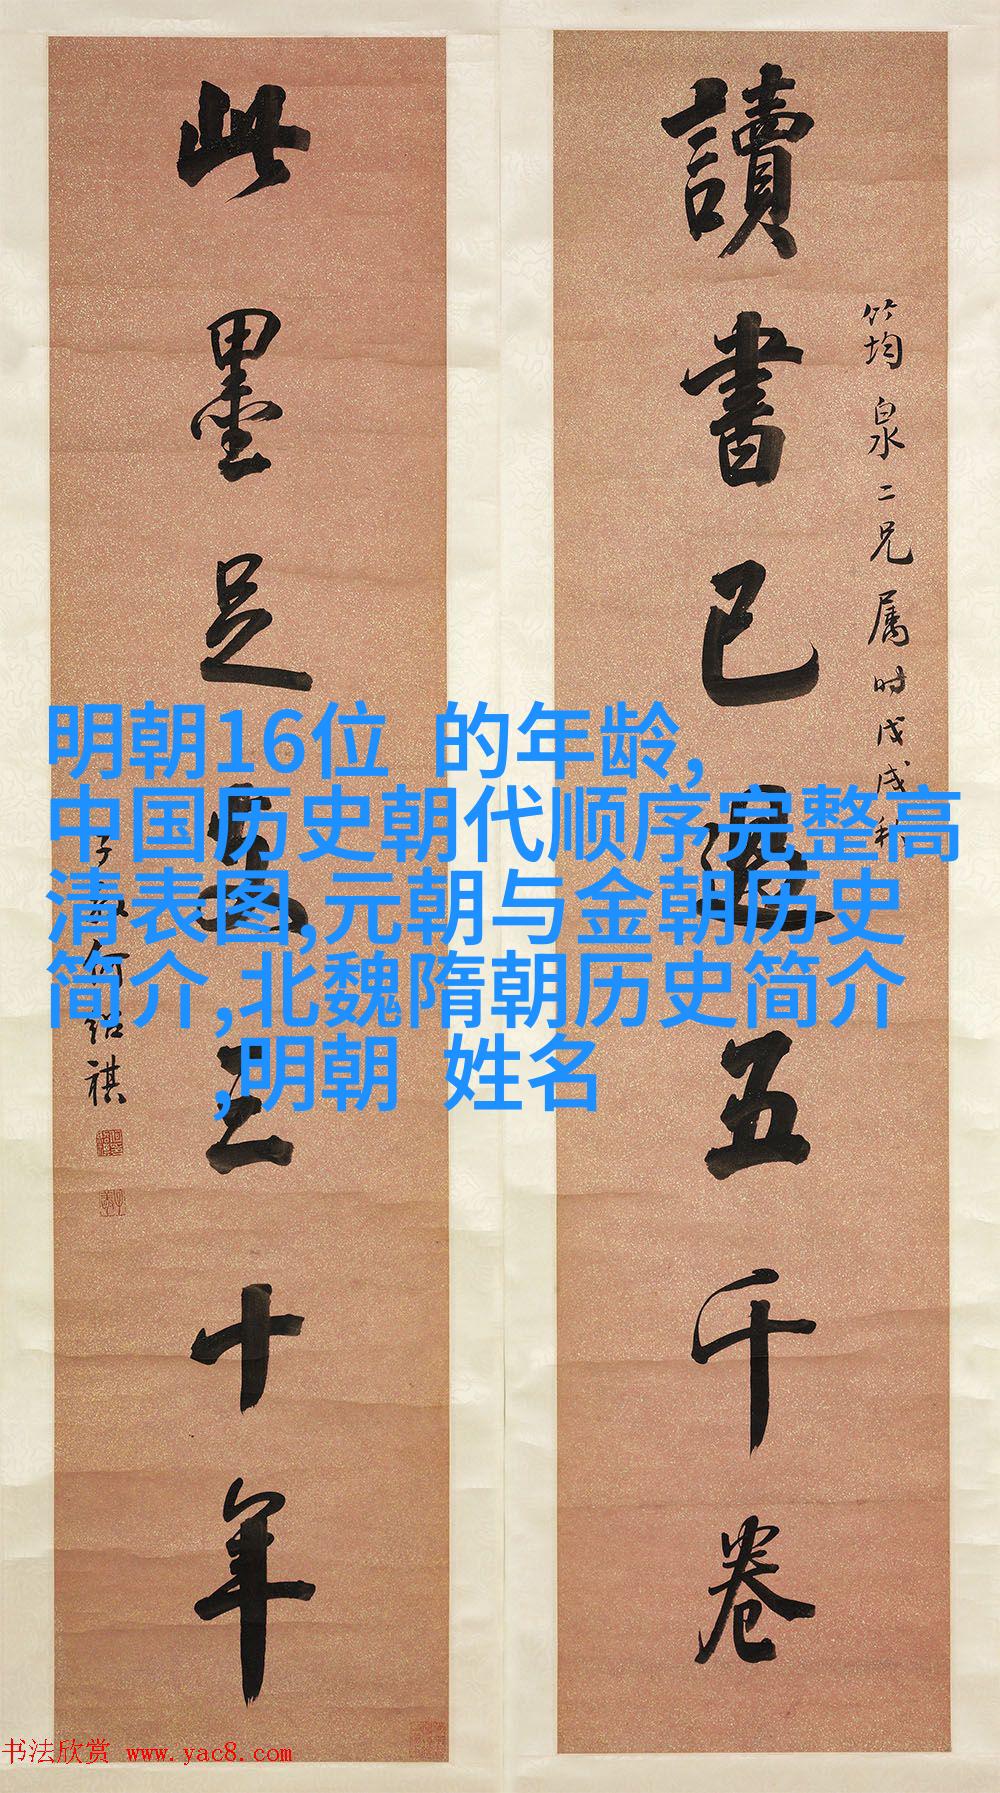 讀書已過五千卷
筠泉二兄属时戊戌秋
此墨足三十年
子何紹祺
明朝16位 的年龄,
中国历史朝代顺序完整高
清表图,元朝与金朝历史
简介,北魏隋朝历史简介
,明朝 姓名
书法欣赏 www.yac8.com